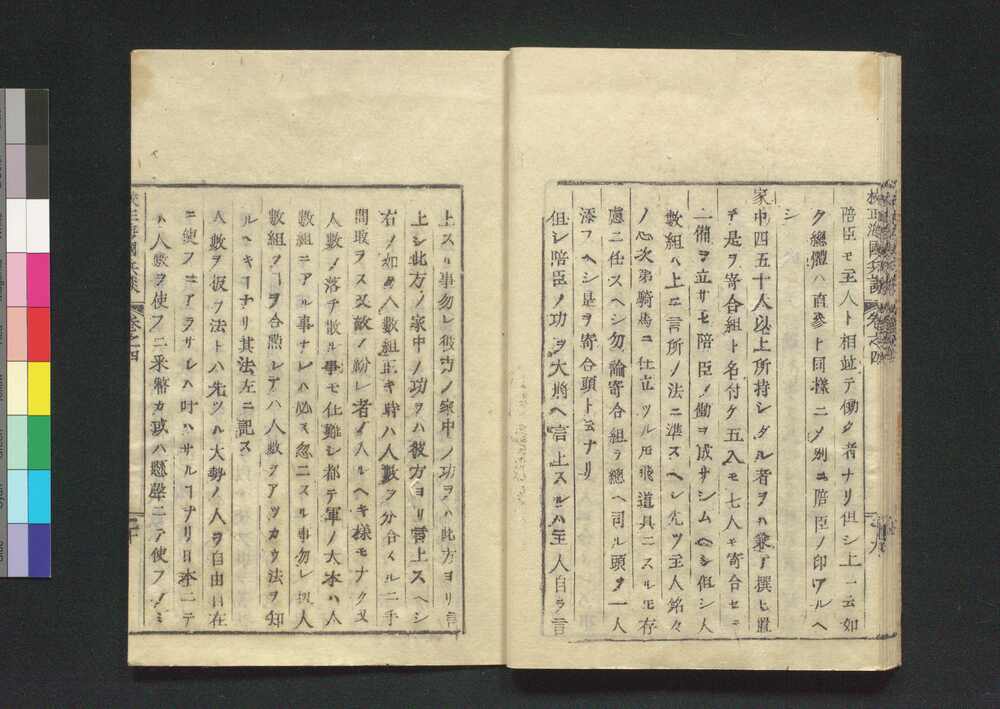 陪臣モ主人ト相並テ働ク者ナリ但シ上ニ云如
ク總體ハ直參ト同樣ニメ別ニ陪臣ノ印アルヘ
シ
家中四五十人以上所持シタル者ヲハ兼テ撰ヒ置
テ是ヲ寄合組ト名付ケ五人モ七人モ寄合セテ
一備ヲ立サセ陪臣ノ働ヲ成サシムヘシ但シ人
數組ハ上ニ言所ノ法ニ準スヘシ先ツ主人銘々
ノ心次第騎馬ニ仕立ツル𪜈飛道具ニスル𪜈存
慮ニ任スヘシ勿論寄合組ヲ總ヘ司ル頭ヲ一人
添フヘシ是ヲ寄合頭ト云ナリ
但シ陪臣ノ功ヲ大將ヘ言上スルハ主人自ラ言
上スル事勿レ彼方ノ家中ノ功ヲハ此方ヨリ言
上シ此方ノ家中ノ功ヲハ彼方ヨリ言上スヘシ
右ノ如ク人數組正キ時ハ人數ヲ分合スルニ手
間取ヲス又敵ノ紛レ者ノ入ルヘキ樣モナク又
人數ノ落チ散ル事モ仕難シ都テ軍ノ大本ハ人
數組ニアル事ナレハ必ス忽ニスル事勿レ扨人
數組ヿヲ合點シテハ人數ヲアツカウ法ヲ知
ルヘキヿナリ其法左ニ記ス
人數ヲ扱フ法トハ先ツハ大勢ノ人ヲ自由自在
ニ使フニアラサレハ叶ハサルヿナリ日本ニテ
ハ人數ヲ使フニ采幣カ或ハ懸聲ニテ使フノミ
校正海國兵談
卷之四